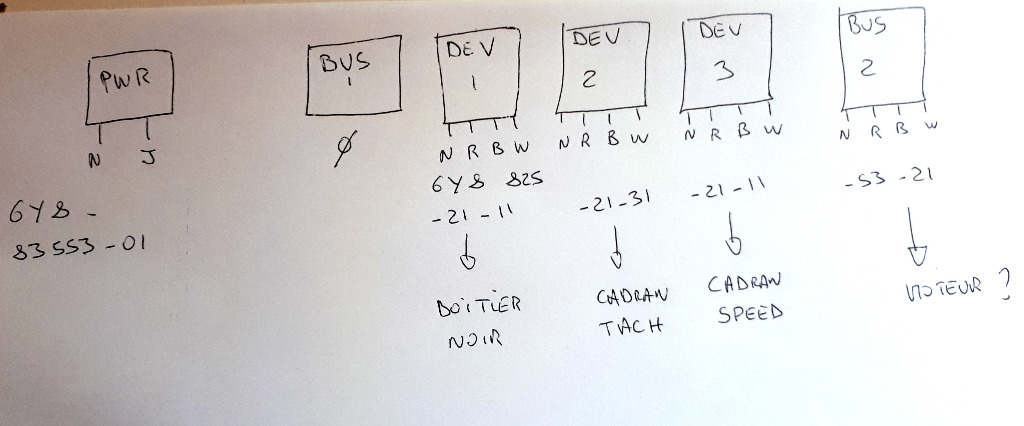 PWR
N J
6Y8 -
83553-01
BUS
1
Ø
DEV
1
N R B W
6Y8 825
-21-11
BOITIER
NOIR
DEV
2
N R B W
-21-31
CADRAN
TACH
DEV
3
N R B W
-21-11
CADRAN
SPEED
BUS
2
N R B W
-53-21
MOTEUR ?